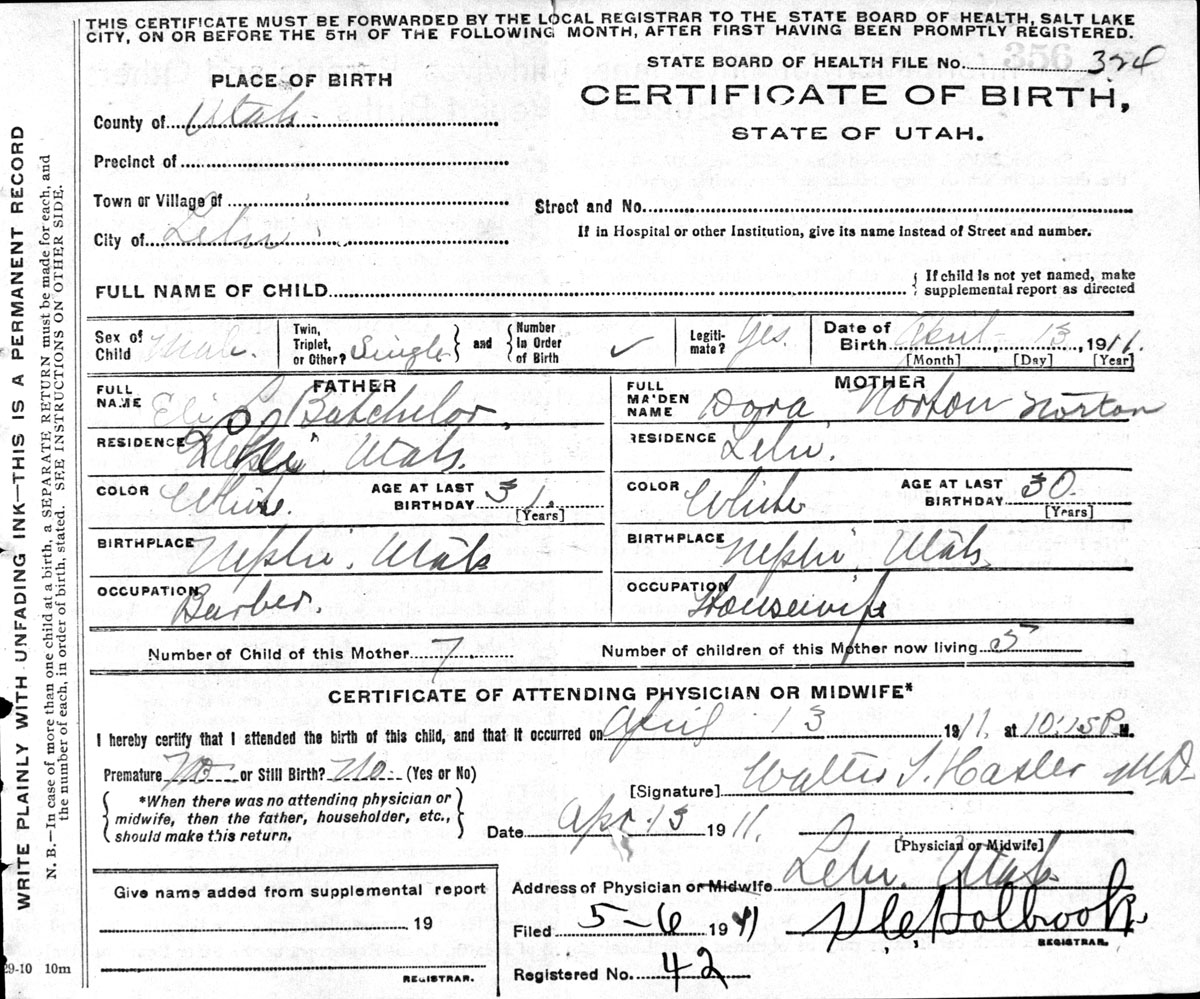 THIS CERTIFICATE MUST BE FORWARDED BY THE LOCAL REGISTRAR TO THE STATE BOARD OF HEALTH, SALT LAKE
CITY, ON OR BEFORE THE 5TH OF THE FOLLOWING MONTH, AFTER FIRST HAVING BEEN PROMPTLY REGISTERED.
WRITE PLAINLY WITH UNFADING INK—THIS IS A PERMANENT RECORD
N. B.—In case of more than one child at a birth, a SEPARATE RETURN must be made for each, and
the number of each, in order of birth, stated. SEE INSTRUCTIONS ON OTHER SIDE.
STATE BOARD OF HEALTH FILE No. 324
356
PLACE OF BIRTH
CERTIFICATE OF BIRTH,
STATE OF UTAH.
County of Utah
Precinct of
Town or Village of
Street and No.
City of Lehi
If in Hospital or other Institution, give its name instead of Street and number.
FULL NAME OF CHILD { If child is not yet named, make
supplemental report as directed
Sex of Child Male. Twin, Triplet, or Other? Single } and { Number In Order of Birth ✓ Legiti-mate? Yes. Date of Birth April 13, 1911.
[Month] [Day] [Year]
FATHER
FULL NAME Eli Batchelor
RESIDENCE Lehi, Utah.
COLOR White. AGE AT LAST BIRTHDAY 31. [Years]
BIRTHPLACE Nephi, Utah
OCCUPATION Barber.
MOTHER
FULL MAIDEN NAME Dora Norton Norton
RESIDENCE Lehi.
COLOR White AGE AT LAST BIRTHDAY 30. [Years]
BIRTHPLACE Nephi, Utah.
OCCUPATION Housewife
Number of Child of this Mother 7 Number of children of this Mother now living 5
CERTIFICATE OF ATTENDING PHYSICIAN OR MIDWIFE*
I hereby certify that I attended the birth of this child, and that it occurred on April 13 1911, at 10:15 P.M.
Premature No or Still Birth? No. (Yes or No)
[Signature] Walter T. Hasler M.D.
{ *When there was no attending physician or
midwife, then the father, householder, etc.,
should make this return. }
Date Apr. 13 1911.
[Physician or Midwife]
Address of Physician or Midwife Lehi. Utah
Give name added from supplemental report
19
REGISTRAR.
Filed 5-6 1911 Holbrook
REGISTRAR.
Registered No. 42
29-10 10m